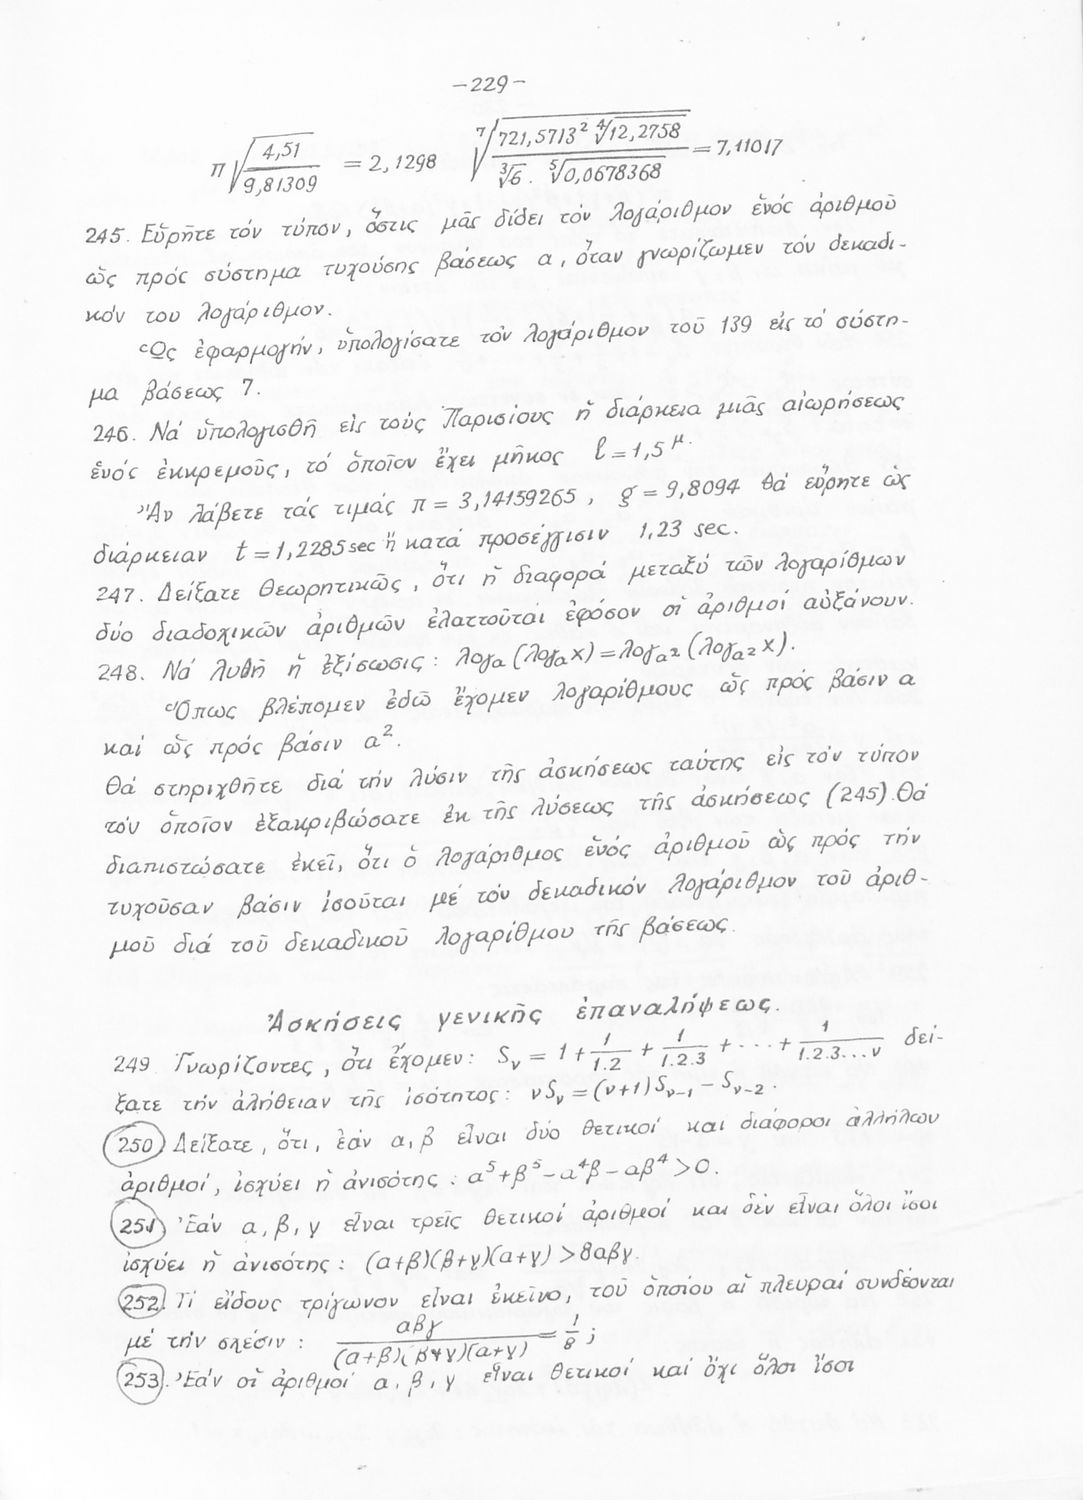 -229-
π√(4,51/9,81309) = 2,1298 ⁷√((721,5713² ⁴√12,2758)/(³√6 . ⁵√0,0678368)) = 7,11017
245. Εὕρητε τόν τύπον, ὅστις μᾶς δίδει τόν λογάριθμον ἑνός ἀριθμοῦ
ὡς πρός σύστημα τυχούσης βάσεως α, ὅταν γνωρίζωμεν τόν δεκαδι-
κόν του λογάριθμον.
Ὡς ἐφαρμογήν, ὑπολογίσατε τόν λογάριθμον τοῦ 139 εἰς τό σύστη-
μα βάσεως 7.
246. Νά ὑπολογισθῆ εἰς τούς Παρισίους ἡ διάρκεια μιᾶς αἰωρήσεως
ἑνός ἐκκρεμοῦς, τό ὁποῖον ἔχει μῆκος ℓ = 1,5 μ.
Ἄν λάβετε τάς τιμάς π = 3,14159265, g = 9,8094 θά εὕρητε ὡς
διάρκειαν t = 1,2285 sec ἤ κατά προσέγγισιν 1,23 sec.
247. Δείξατε θεωρητικῶς, ὅτι ἡ διαφορά μεταξύ τῶν λογαρίθμων
δύο διαδοχικῶν ἀριθμῶν ἐλαττοῦται ἐφόσον οἱ ἀριθμοί αὐξάνουν.
248. Νά λυθῆ ἡ ἐξίσωσις: λογ_α (λογ_α x) = λογ_α² (λογ_α² x).
Ὅπως βλέπομεν ἐδῶ ἔχομεν λογαρίθμους ὡς πρός βάσιν α
καί ὡς πρός βάσιν α².
Θά στηριχθῆτε διά τήν λύσιν τῆς ἀσκήσεως ταύτης εἰς τόν τύπον
τόν ὁποῖον ἐξακριβώσατε ἐκ τῆς λύσεως τῆς ἀσκήσεως (245). Θά
διαπιστώσατε ἐκεῖ, ὅτι ὁ λογάριθμος ἑνός ἀριθμοῦ ὡς πρός τήν
τυχοῦσαν βάσιν ἰσοῦται μέ τόν δεκαδικόν λογάριθμον τοῦ ἀριθ-
μοῦ διά τοῦ δεκαδικοῦ λογαρίθμου τῆς βάσεως.
Ἀσκήσεις γενικῆς ἐπαναλήψεως.
249 Γνωρίζοντες, ὅτι ἔχομεν: S_ν = 1 + 1/1.2 + 1/1.2.3 + ... + 1/1.2.3...ν δεί-
ξατε τήν ἀλήθειαν τῆς ἰσότητος: νS_ν = (ν+1)S_ν-1 - S_ν-2.
250) Δείξατε, ὅτι, ἐάν α, β εἶναι δύο θετικοί καί διάφοροι ἀλλήλων
ἀριθμοί, ἰσχύει ἡ ἀνισότης: α⁵+β⁵-α⁴β-αβ⁴>0.
251) Ἐάν α, β, γ εἶναι τρεῖς θετικοί ἀριθμοί καί δέν εἶναι ὅλοι ἴσοι
ἰσχύει ἡ ἀνισότης: (α+β)(β+γ)(α+γ) > 8αβγ.
252. Τί εἴδους τρίγωνον εἶναι ἐκεῖνο, τοῦ ὁποίου αἱ πλευραί συνδέονται
μέ τήν σχέσιν: αβγ/((α+β)(β+γ)(α+γ)) = 1/8 ;
253. Ἐάν οἱ ἀριθμοί α, β, γ εἶναι θετικοί καί ὄχι ὅλοι ἴσοι